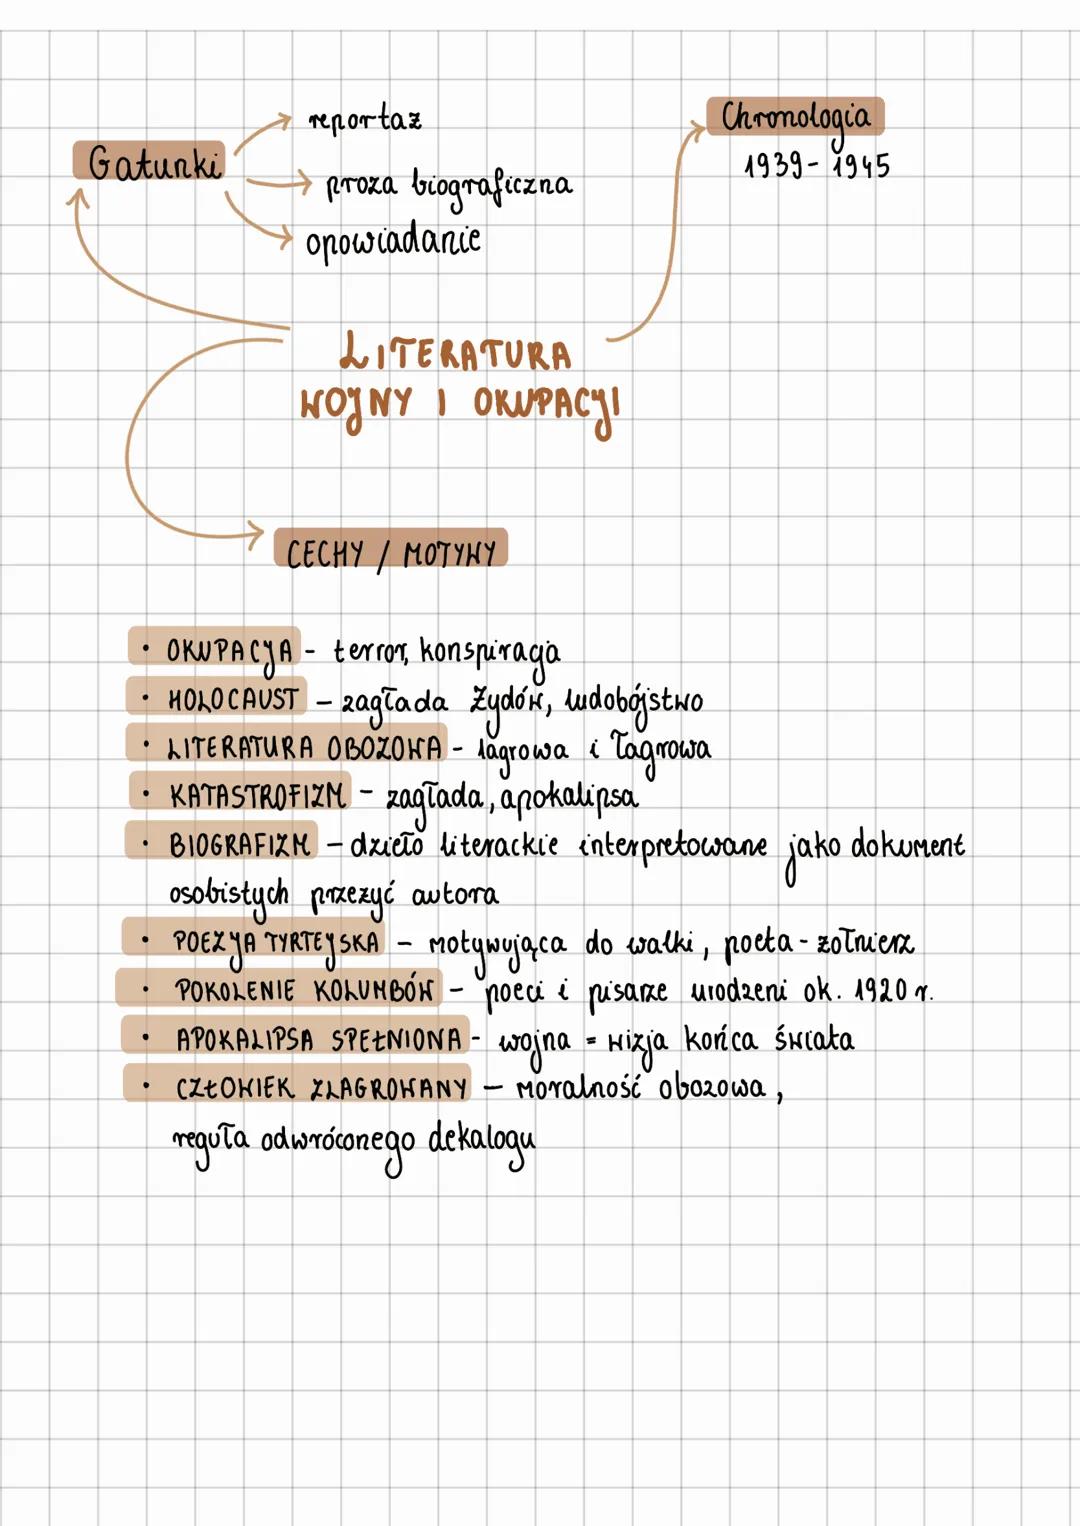 Gatunki
reportaż
proza biograficzna
opowiadanie
Chronologia
1939-1945
LITERATURA
WOJNY I OKUPACJI
CECHY / MOTYWY
• OKUPACJA - terror, konspiracja
• HOLOCAUST - zagłada Żydów, ludobójstwo
• LITERATURA OBOZOWA - lagrowa i łagrowa
• KATASTROFIZM - zagłada, apokalipsa
• BIOGRAFIZM - dzieło literackie interpretowane jako dokument
osobistych przeżyć autora
• POEZJA TYRTEJSKA - motywująca do walki, poeta-żołnierz
• POKOLENIE KOLUMBÓW - poeci i pisarze urodzeni ok. 1920 r.
• APOKALIPSA SPEŁNIONA - wojna = wizja końca świata
• CZŁOWIEK ZLAGROWANY - moralność obozowa,
reguła odwróconego dekalogu